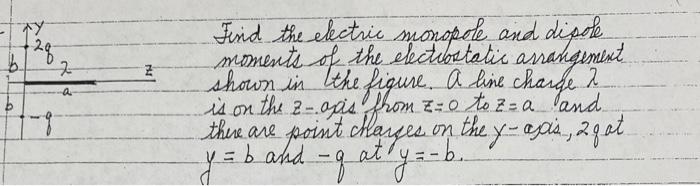 y
2q
b
λ
z
a
b
-q
Find the electric monopole and dipole
moments of the electrostatic arrangement
shown in the figure. A line charge λ
is on the z-axis from z=0 to z=a and
there are point charges on the y-axis, 2q at
y = b and -q at y=-b.